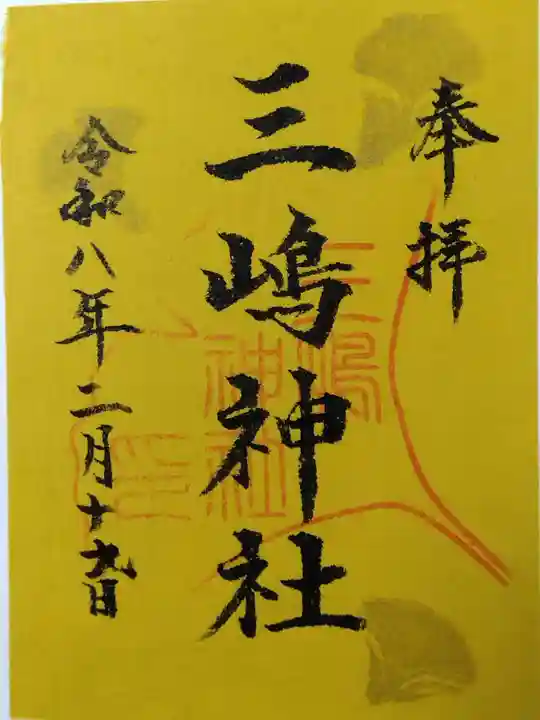 奉拝
三嶋神社
令和八年二月十九日
三嶋
神社
印